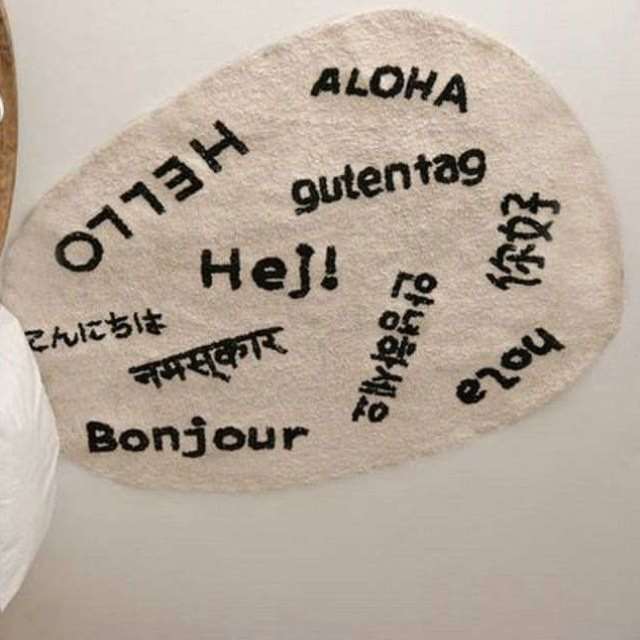 ALOHA
HELLO
guten tag
你好
Hej!
こんにちは
नमस्कार
안녕하세요
Hola
Bonjour